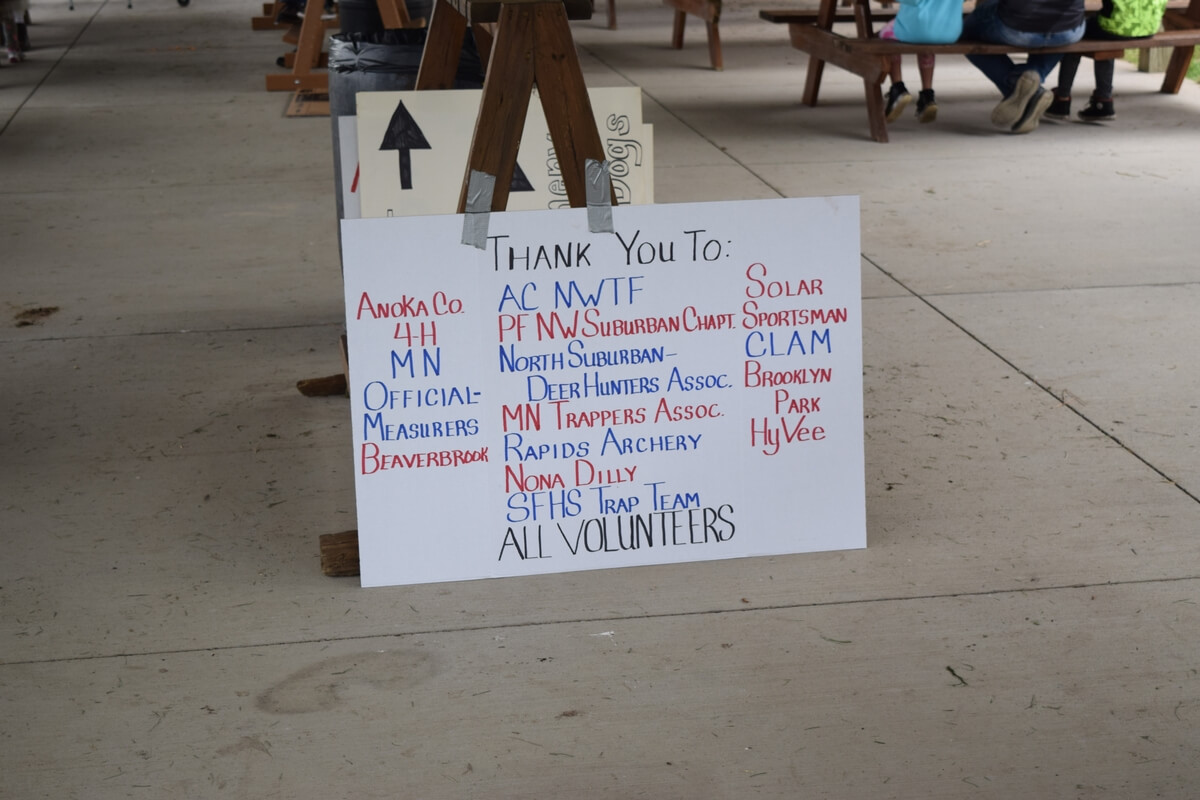 Dogs
THANK YOU TO:
ANOKA CO.
4-H
MN
OFFICIAL-
MEASURERS
BEAVERBROOK
AC NWTF
PF NW SUBURBAN CHAPT.
NORTH SUBURBAN-
DEER HUNTERS ASSOC.
MN TRAPPERS ASSOC.
RAPIDS ARCHERY
NONA DILLY
SFHS TRAP TEAM
ALL VOLUNTEERS
SOLAR
SPORTSMAN
CLAM
BROOKLYN
PARK
HyVee